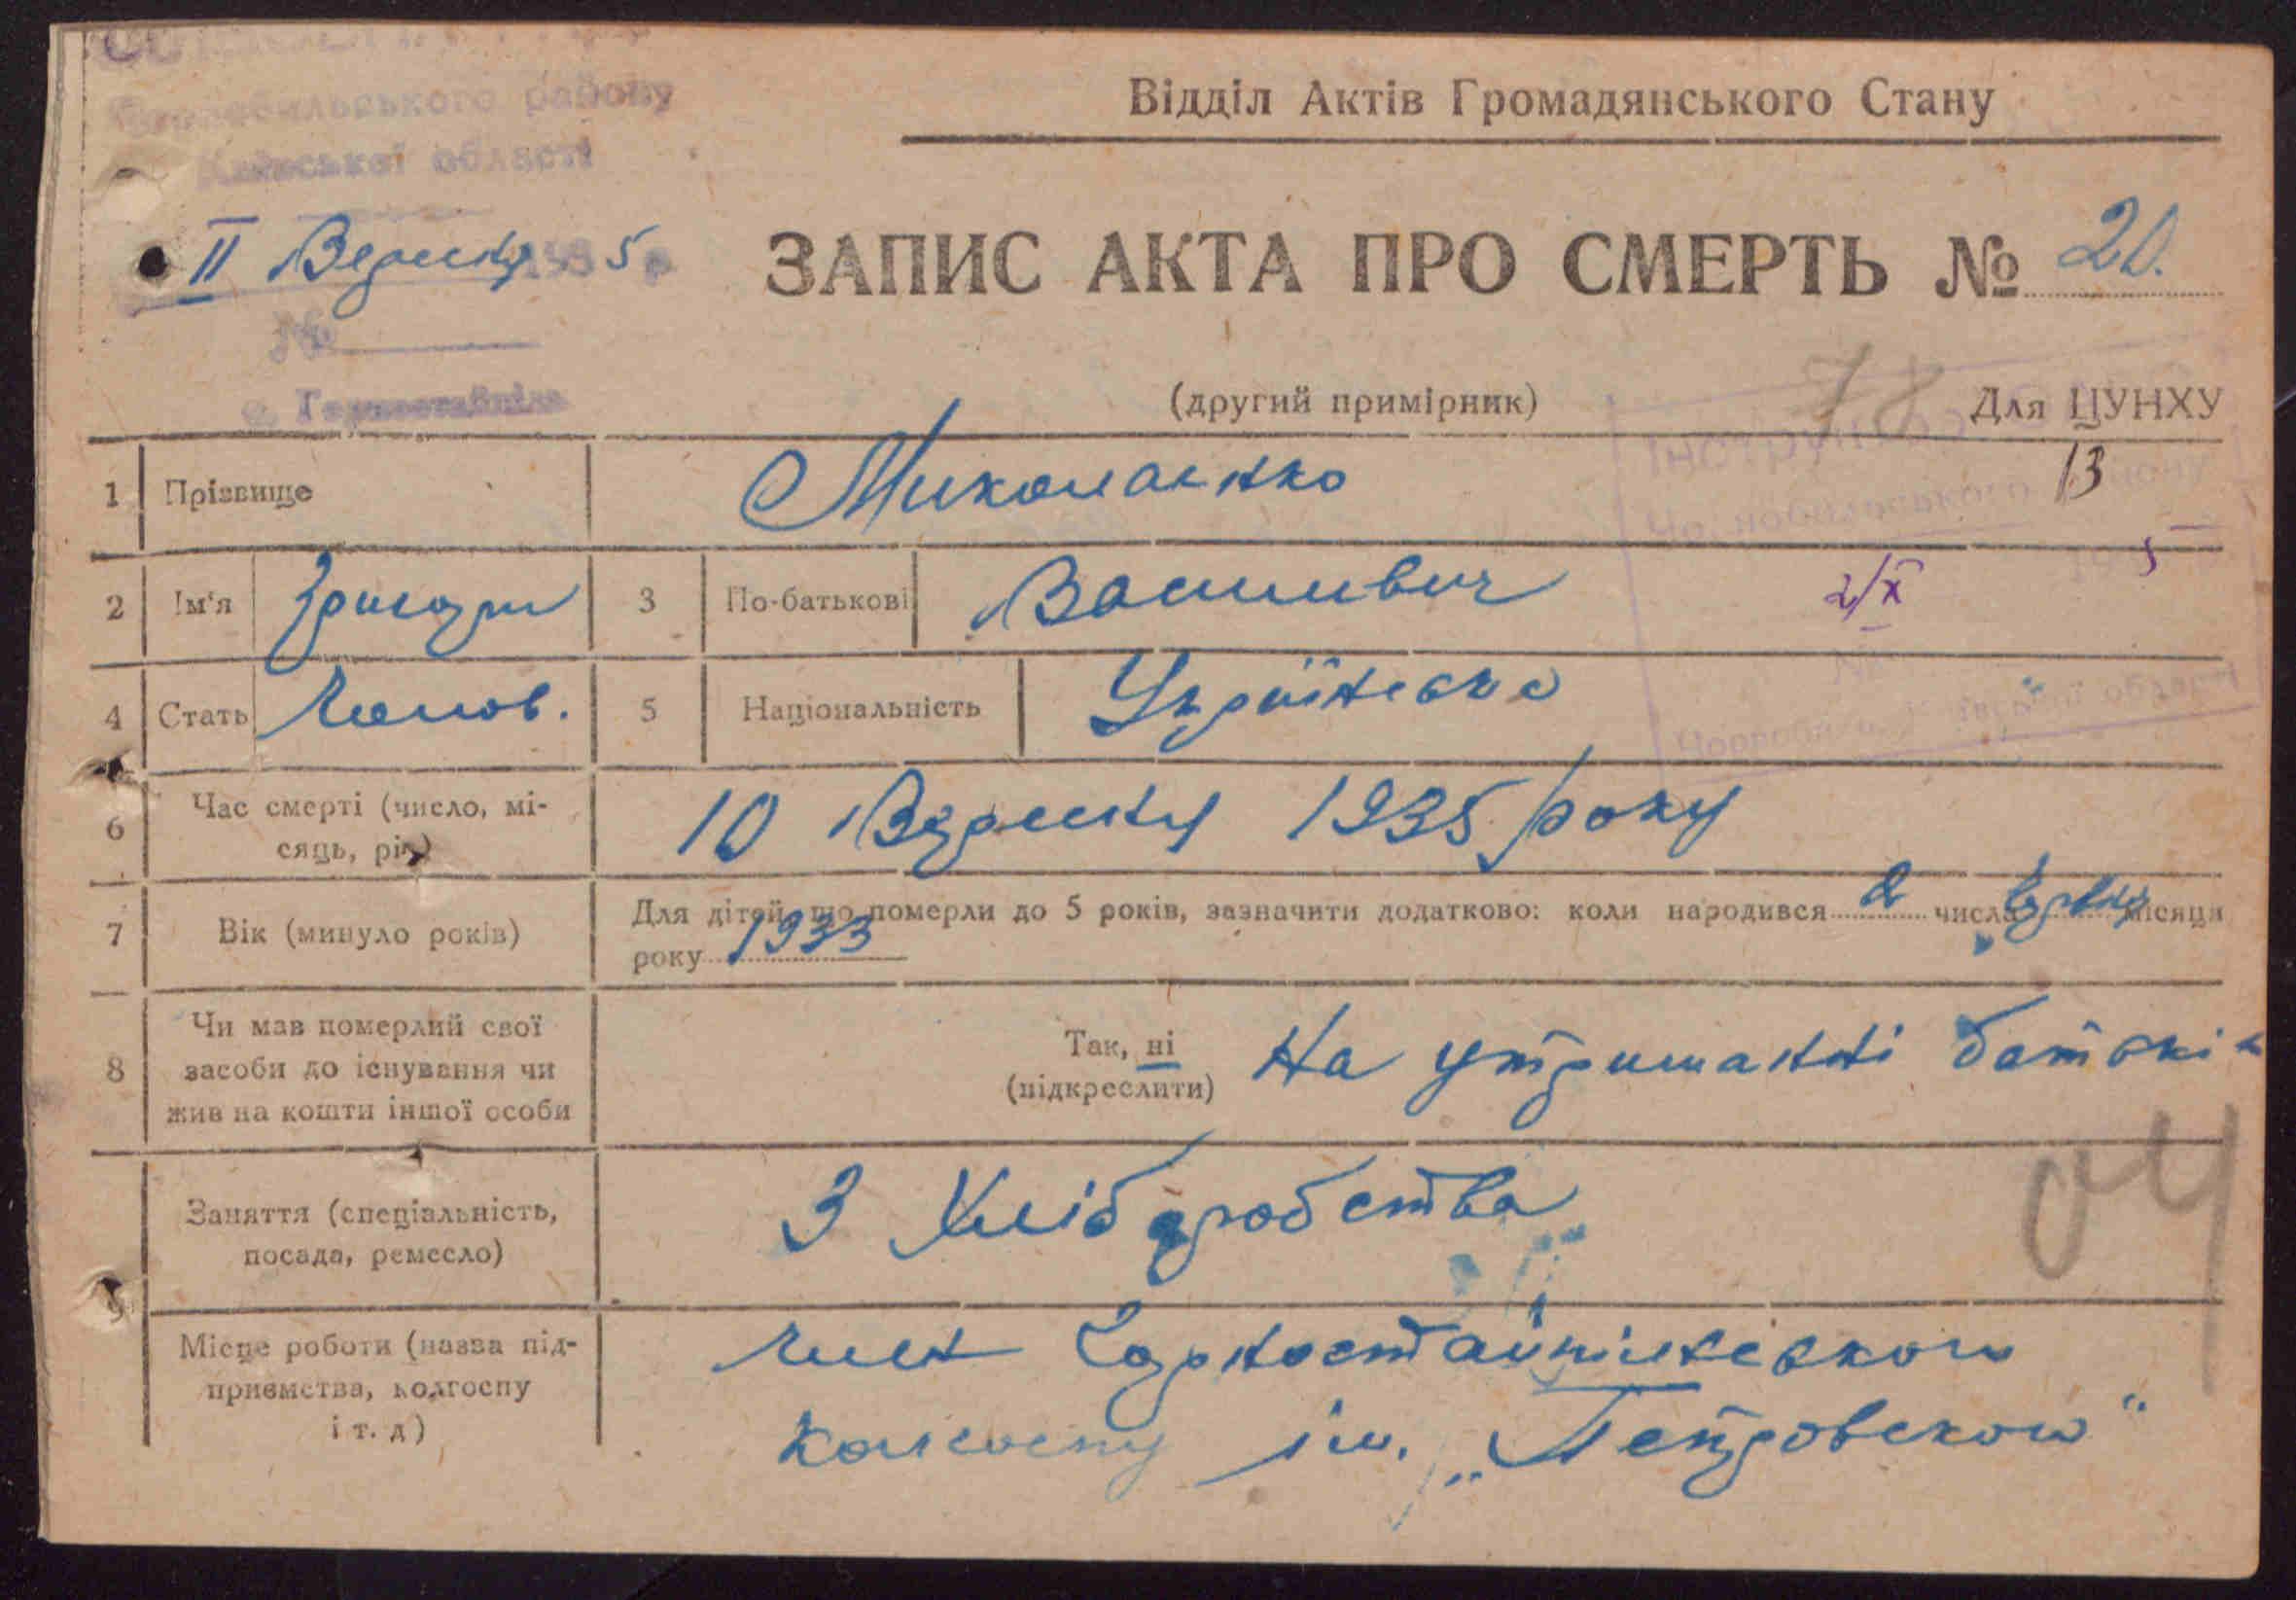 Чорнобильського району
Київської області
Відділ Актів Громадянського Стану
II Вересня 1935 р
ЗАПИС АКТА ПРО СМЕРТЬ № 20.
№
с. Горностайпіль
(другий примірник)
Для ЦУНХУ
78
13
1 Прізвище Миколаенко
2 Ім'я Григорий 3 По-батькові Василивич
2/X 5
4 Стать Чолов. 5 Національність Українська
6 Час смерті (число, мі-
сяць, рік) 10 Вересня 1935 року
7 Вік (минуло років) Для дітей, що померли до 5 років, зазначити додатково: коли народився 2 числа червня місяця
року 1933
8 Чи мав померлий свої
засоби до існування чи
жив на кошти іншої особи
Так, ні
(підкреслити) На утриманні батьків
04
9 Заняття (спеціальність,
посада, ремесло) З Хліборобства
Місце роботи (назва під-
приємства, колгоспу
і т. д)
член Горностайпільсько
колгоспу ім. „Петровсько"